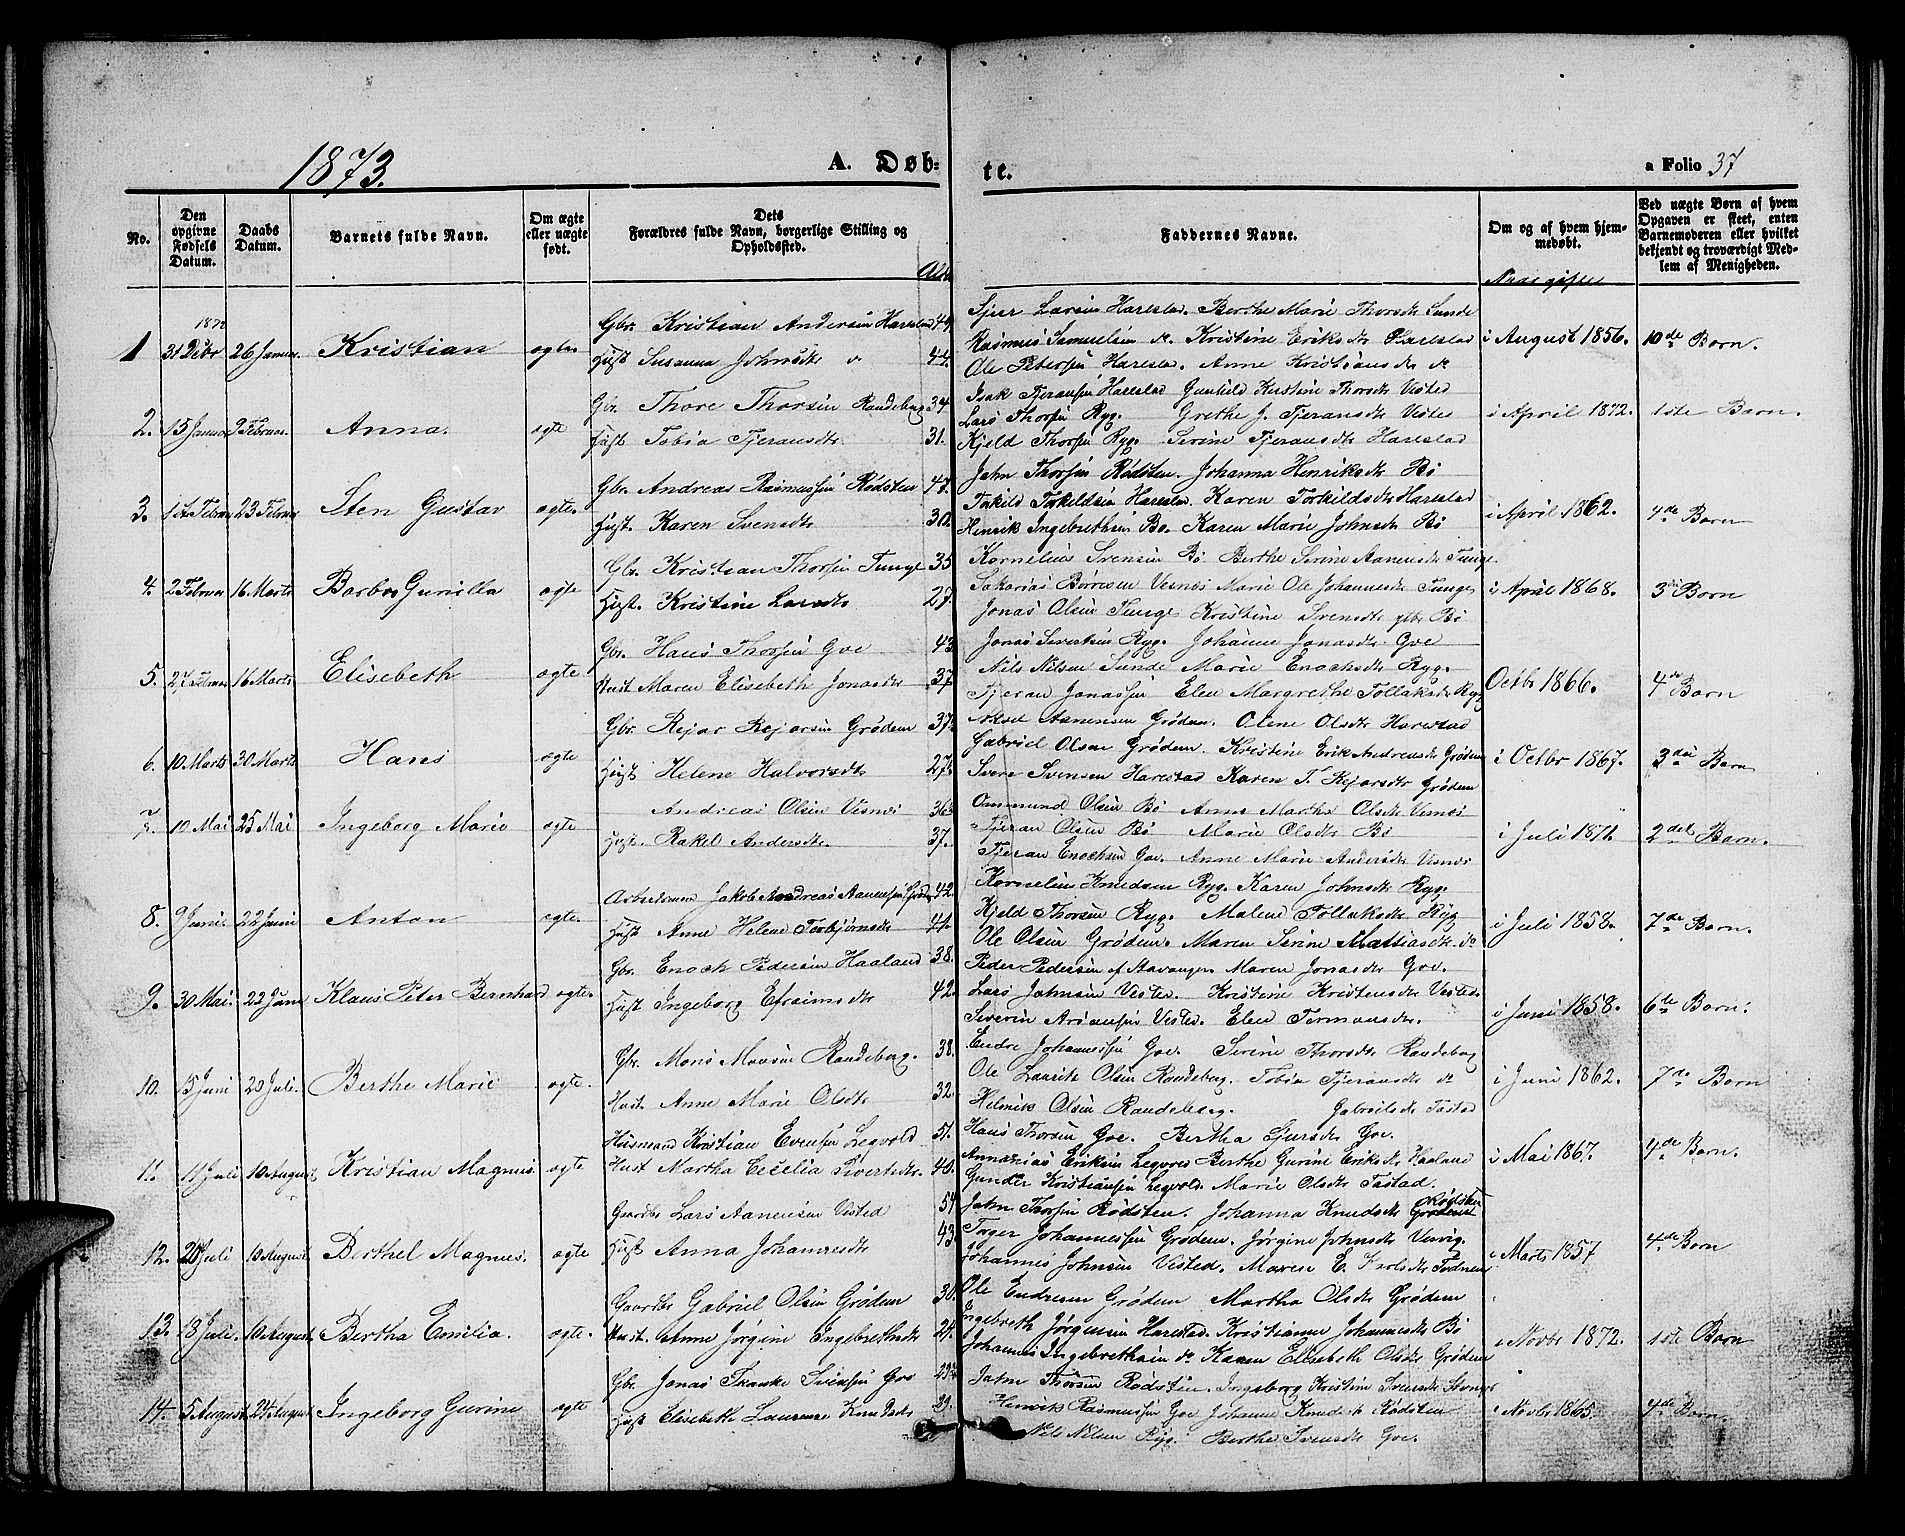 1873.
A. Døb-
te.
a Folio 37
No.
Den opgivne Fødsels Datum.
Daabs Datum.
Barnets fulde Navn.
Om ægte eller uægte født.
Dets
Forældres fulde Navn, borgerlige Stilling og Opholdssted.
Alder
Faddernes Navne.
Om og af hvem hjemmedøbt.
Naar gifte
Ved uægte Børn af hvem Opgaven er skeet, enten Barnemoderen eller hvilket bekjendt og troværdigt Medlem af Menigheden.
1872
1 31 Debr 26 Januar Kristian ægte
Gbr. Kristian Andersen Harestad 44.
Hust Susanna Johnsdtr do 44.
Sjur Larsen Harestad. Berthe Marie Thorsdtr Sunde
Rasmus Samuelsen do. Kristine Eriksdtr Harestad
Ole Petersen Harestad. Anne Kristiansdtr do
i August 1856. 10de Barn.
2. 15 Januar 9 Februar. Anna. ægte
Gbr. Thore Thorsen Randeberg 34
Hust Tobia Tjeransdtr 31.
Isak Tjeransen Harestad Gunhild Kirstine Thorsdtr Visted
Lars Thorsen Ryg. Grethe J. Tjeransdtr Visted
Kjeld Thorsen Ryg. Serine Tjeransdtr Harestad
i April 1872. 1ste Barn.
3. 1st Februar 23 Februar Sten Gustav ægte.
Gbr. Andreas Rasmussen Rødsten 47.
Hust. Karen Svensdtr 30.
John Thorsen Rødsten. Johanna Henriksdtr Bø
Torkild Torkildsen Harestad. Karen Torkildsdtr Harestad
Henrik Ingebrethsen Bø. Karen Marie Johnsdtr Bø
i April 1862. 4de Barn
4. 2 Februar 16 Marts Barbro Gunilla ægte
Gbr. Kristian Thorsen Tunge 35
Hust. Kristine Larsdtr 27.
Kornelius Svensen Bø Berthe Serine Aanensdtr Tunge
Sakarias Børresen Visnes Marie Ole Johannesdtr Tunge
Jonas Olsen Tunge Kristine Svensdtr Bø
i April 1868. 3die Barn
5. 27 Februar 16 Marts Elisebeth ægte
Gbr. Hans Thorsen Goe 43
Hust Maren Elisebeth Jonasdtr 37.
Jonas Sivertsen Ryg. Johanne Jonasdtr Goe
Nils Nilsen Sunde Marie Enochsdtr Ryg.
Tjeran Jonassen Elen Margrethe Tollaksdtr Ryg
Octbr 1866. 4de Barn
6. 10 Marts 30 Marts Hans ægte
Gbr. Rejar Rejarsen Grødem 37.
Hust Helene Halvorsdtr 27.
Aksel Aanensen Grødem. Olene Olsdtr Harestad
Gabriel Olsen Grødem. Kristine Erik Andreasdtr Grødem
Sven Svensen Harestad Karen T. Rejarsdtr Grødem
i Octbr 1867. 3die Barn
7. 10 Mai 25 Mai Ingeborg Marie ægte
Andreas Olsen Visnes 36
Hust. Rakel Andersdtr. 37.
Ommund Olsen Bø Anne Martha Olsdtr Visnes
Tjeran Olsen Bø Marie Olsdtr Bø
Tjeran Enochsen Goe. Anne Marie Andersdtr Visnes
i Juli 1871. 2det Barn.
8. 9 Juni. 22 Juni Anton ægte
Arbeidsmand Jakob Andreas Aanensen Grødem 42.
Hust Anne Helene Torbjørnsdtr 41.
Kornelius Knudsen Ryg. Karen Johnsdtr Ryg.
Kjeld Thorsen Ryg. Malene Tollaksdtr Ryg
Ole Olsen Grødem. Maren Serine Mattiasdtr do
i Juli 1858. 7de Barn.
9. 30 Mai. 22 Juni Klaus Peter Bernhard ægte.
Gbr. Enoch Pedersen Haaland 38.
Hust Ingeborg Efraimsdtr 42.
Peder Pedersen af Stavanger. Maren Jonasdtr Goe.
Lars Johnsen Visted. Kristine Kristensdtr Visted.
Severin Visted. Elen Tormansdtr.
i Juni 1858. 6te Barn.
10. 15 Juni 20 Juli. Berthe Marie ægte.
Gbr. Mons Monsen Randeberg. 38.
Hust. Anne Marie Olsdtr 32.
Endre Johannessen Goe. Serine Thorsdtr Randeberg
Ole Lauritz Olsen Randeberg. Tobia Tjeransdtr do
Helmik Olsen Randeberg. Gabrielsdtr Tastad
i Juni 1862. 7de Barn
11. 11 Juli 10 August Kristian Magnus ægte
Husmand Kristian Evensen Legvold 51.
Hust Martha Cecelia Sivertsdtr. 40.
Hans Thorsen Goe. Bertha Sjursdtr Goe.
Annanias Eriksen Legvold Berthe Gurine Eriksdtr Haaland
Gunder Kristiansen Legvold. Marie Olsdtr Tastad.
i Mai 1867. 4de Barn.
12. 20 Juli 10 August Berthel Magnus. ægte
Gaardbr Lars Aanensen Visted 54
Hust Anna Johannesdtr 43.
John Thorsen Rødsten. Johanna Knudsdtr Rødsten
Torger Johannessen Grødem. Jørgine Johnsdtr Visvig
Johannes Johnsen Visted. Maren E. Karlsdtr Todnem
i Marts 1857 4de Barn
13. 18 Juli. 10 August. Bertha Emilia. ægte.
Gaardbr Gabriel Olsen Grødem 30.
Hust. Anne Jørgine Ingebrethsdtr 24.
Ole Endresen Grødem Martha Olsdtr Grødem
Ingebreth Jørgensen Harestad. Kristianne Johannesdtr Bø
Johannes Ingebrethsen do Karen Elisabeth Olsdtr Grødem
i Novbr 1872. 1ste Barn
14. 5 August 24 August Ingeborg Gurine ægte
Gbr. Jonas Tranke Svensen Goe 29
Hust Elisebeth Laurense Knudsdtr 29.
John Thorsen Rødsten. Ingeborg Kristine Svensdtr
Henrik Rasmussen Goe Johanne Knudsdtr Rødsten
Nils Nilsen Ryg. Berthe Svensdtr Goe.
i Novbr 1865. 4de Barn.